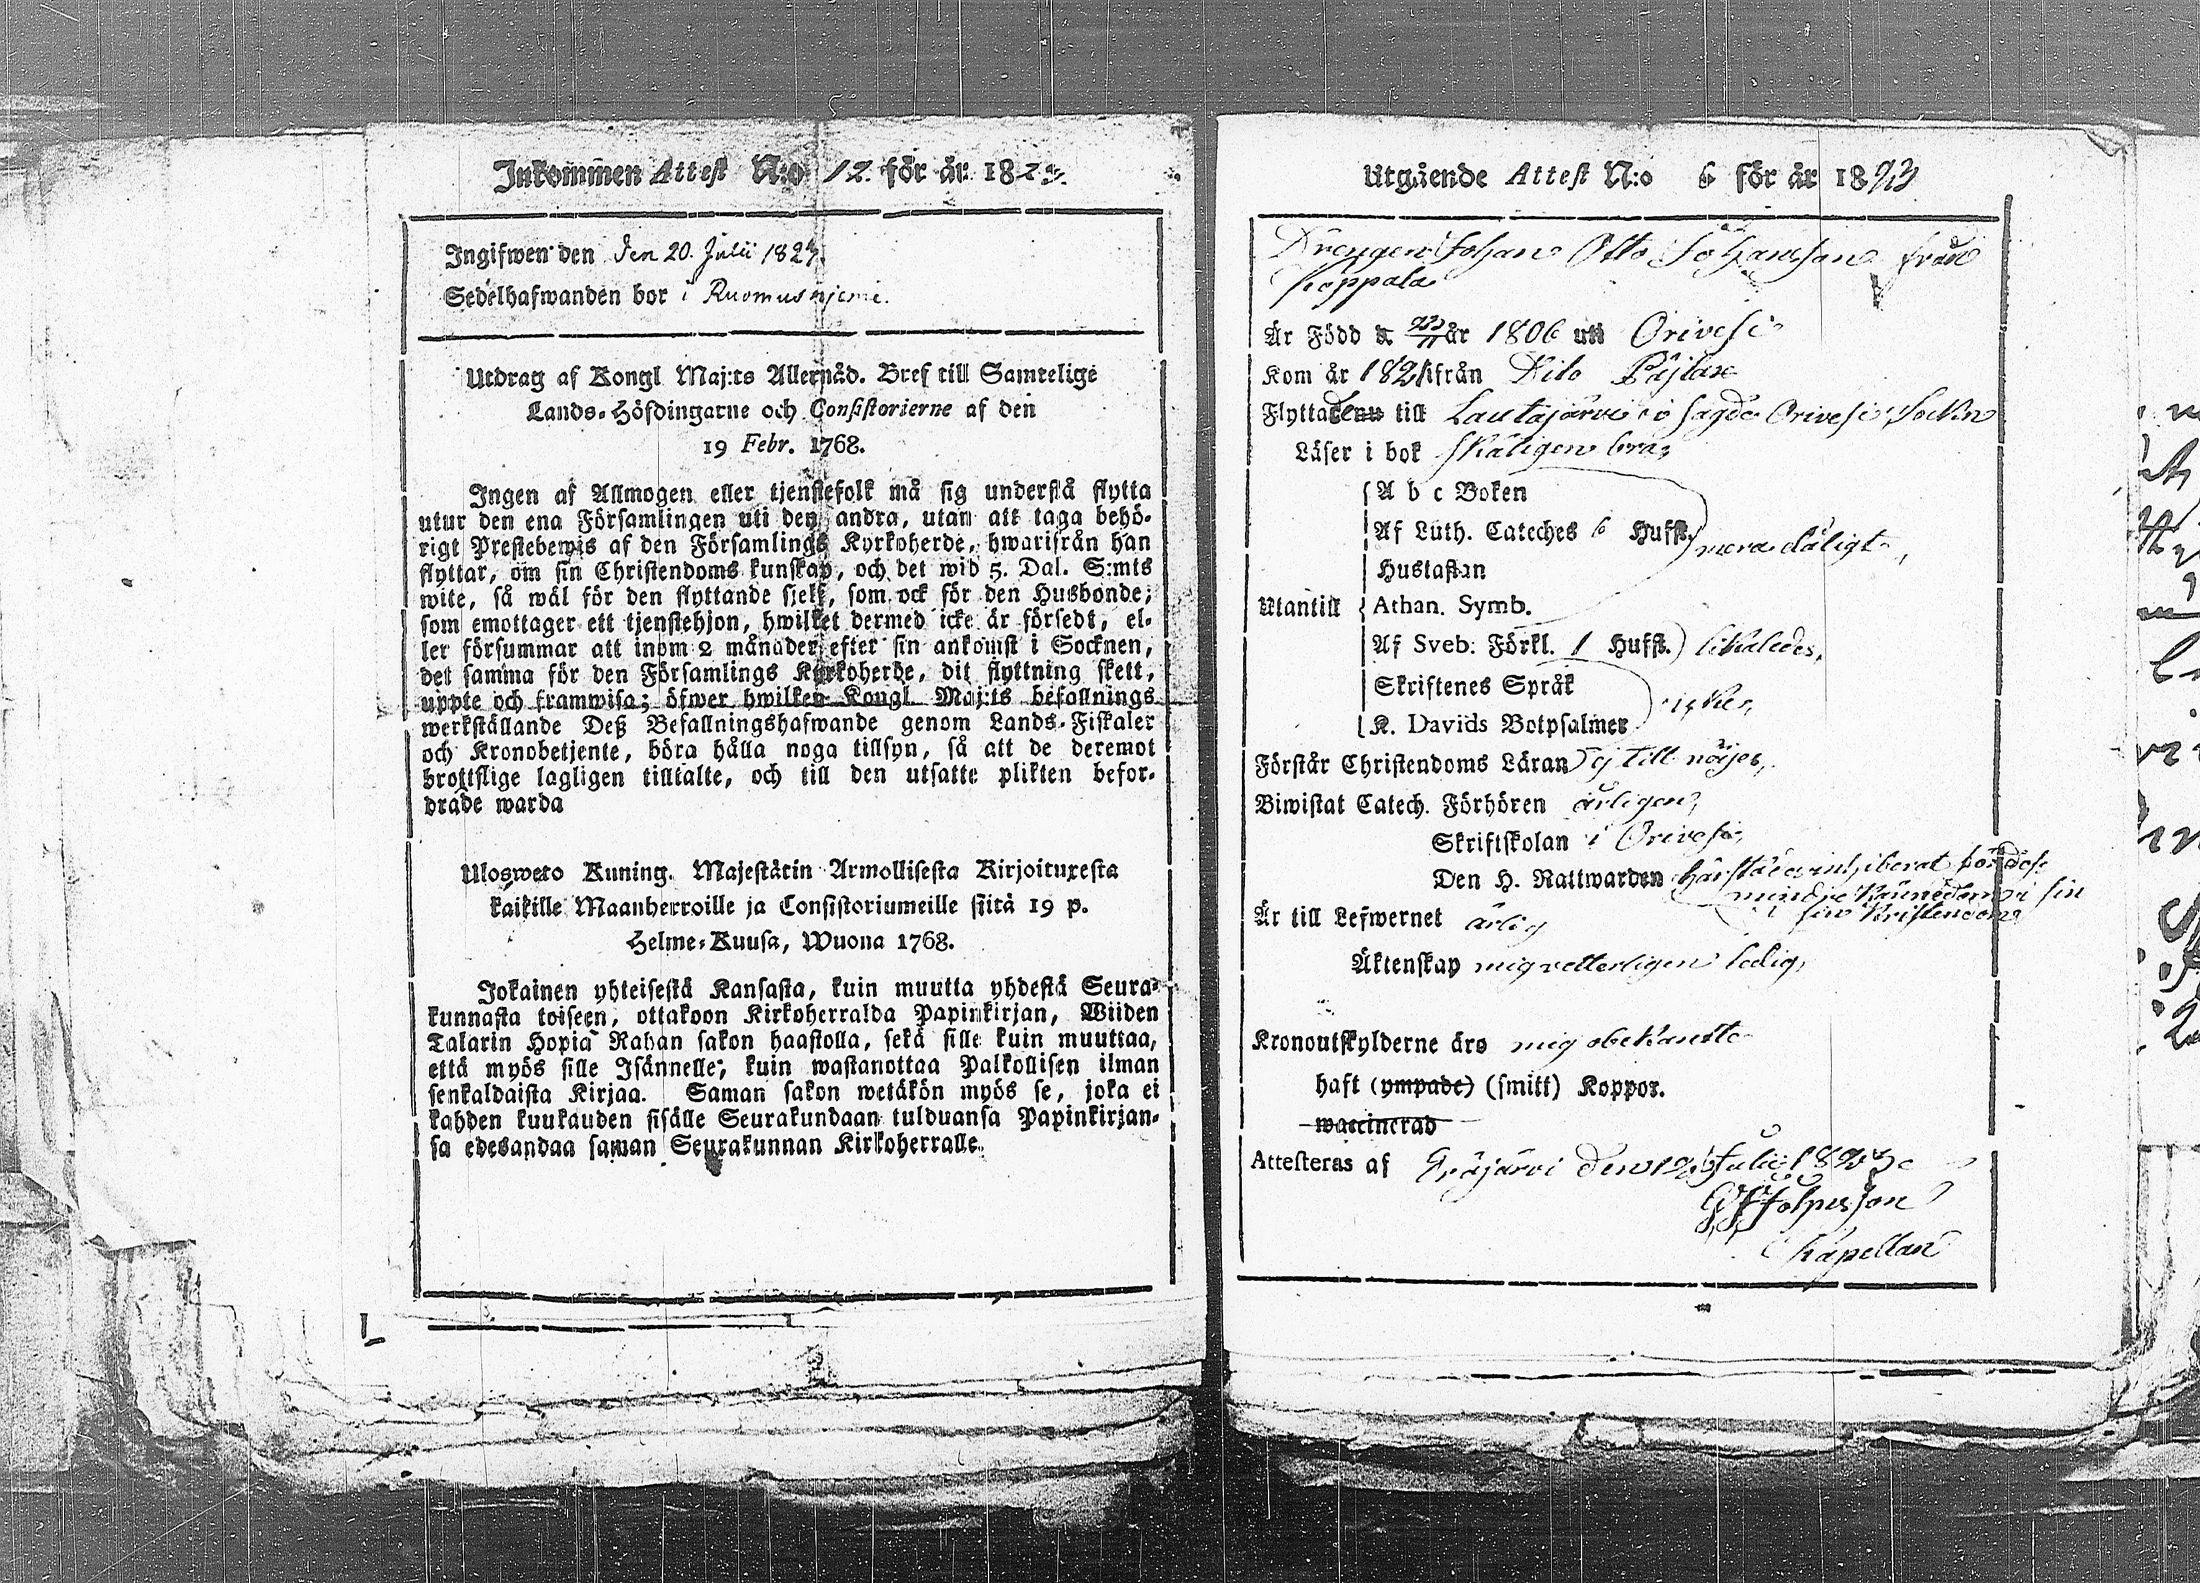 Inkommen Attest N:o 12. för år 1823.
Ingifwen den den 20. Julii 1823.
Sedelhafwanden bor i Ruomusnjemi.
Utdrag af Kongl. Maj:ts Allernåd. Bref till Samtelige
Lands-Höfdingarne och Consistorierne af den
19 Febr. 1768.
Ingen af Allmogen eller tjenstefolk må sig understå flytta
utur den ena Församlingen uti den andra, utan att taga behö-
rigt Prestebewis af den Församlings Kyrkoherde, hwarifrån han
flyttar, om sin Christendoms kunskap, och det wid 5. Dal. S:mts
wite, så wäl för den flyttande sjelf, som ock för den Husbonde;
som emottager ett tjenstehjon, hwilket dermed icke är försedt, el-
ler försummar att inom 2 månader efter sin ankomst i Socknen,
det samma för den Församlings Kyrkoherde, dit flyttning skett,
uppte och framwisa; öfwer hwilken Kongl. Maj:ts befallnings
werkställande Deß Befallningshafwande genom Lands-Fiskaler
och Kronobetjente, böra hålla noga tillsyn, så att de deremot
brottslige lagligen tilltalte, och till den utsatte plikten befor-
drade warda
Ulosweto Kuning. Majestätin Armollisesta Kirjoituxesta
kaikille Maanherroille ja Consistoriumeille siitä 19 p.
Helme-Kuusa, Wuona 1768.
Jokainen yhteisestä Kansasta, kuin muutta yhdestä Seura-
kunnasta toiseen, ottakoon Kirkoherralda Papinkirjan, Wiiden
Talarin Hopia Rahan sakon haastolla, sekä sille kuin muuttaa,
että myös sille Isännelle, kuin wastanottaa Palkollisen ilman
senkaldaista Kirjaa. Saman sakon wetäkön myös se, joka ei
kahden kuukauden sisälle Seurakundaan tulduansa Papinkirjan-
sa edesandaa saman Seurakunnan Kirkoherralle.
Utgående Attest N:o 6 för år 1823
Drengen Johan Otto Johansson från
Koppala
Är Född d. 23/11 år 1806 uti Orivesi
Kom år 1821 ifrån
Flyttade till Lautajärvi i sagde Orivesi Sockn
Läser i bok skäligen bra,
A b c Boken
Af Luth. Cateches 6 Hufst. mera dåligt,
Hustaflan
Utantill Athan. Symb.
Af Sveb. Förkl. 1 Hufst. likaledes,
Skriftenes Språk
K. Davids Botpsalmer
Förstår Christendoms Läran ej till nöjes,
Biwistat Catech. Förhören årligen,
Skriftskolan i Orivesi,
Den H. Nattwarden
mindre kännedom i sin
Kristendom
Är till Lefwernet ärlig
Äktenskap mig vetterligen ledig,
Kronoutskylderne äro mig obekante
haft (ympade) (smitt) Koppor.
waccinerad
Attesteras af Eräjärvi den 12 Julii 1823
Kapellan